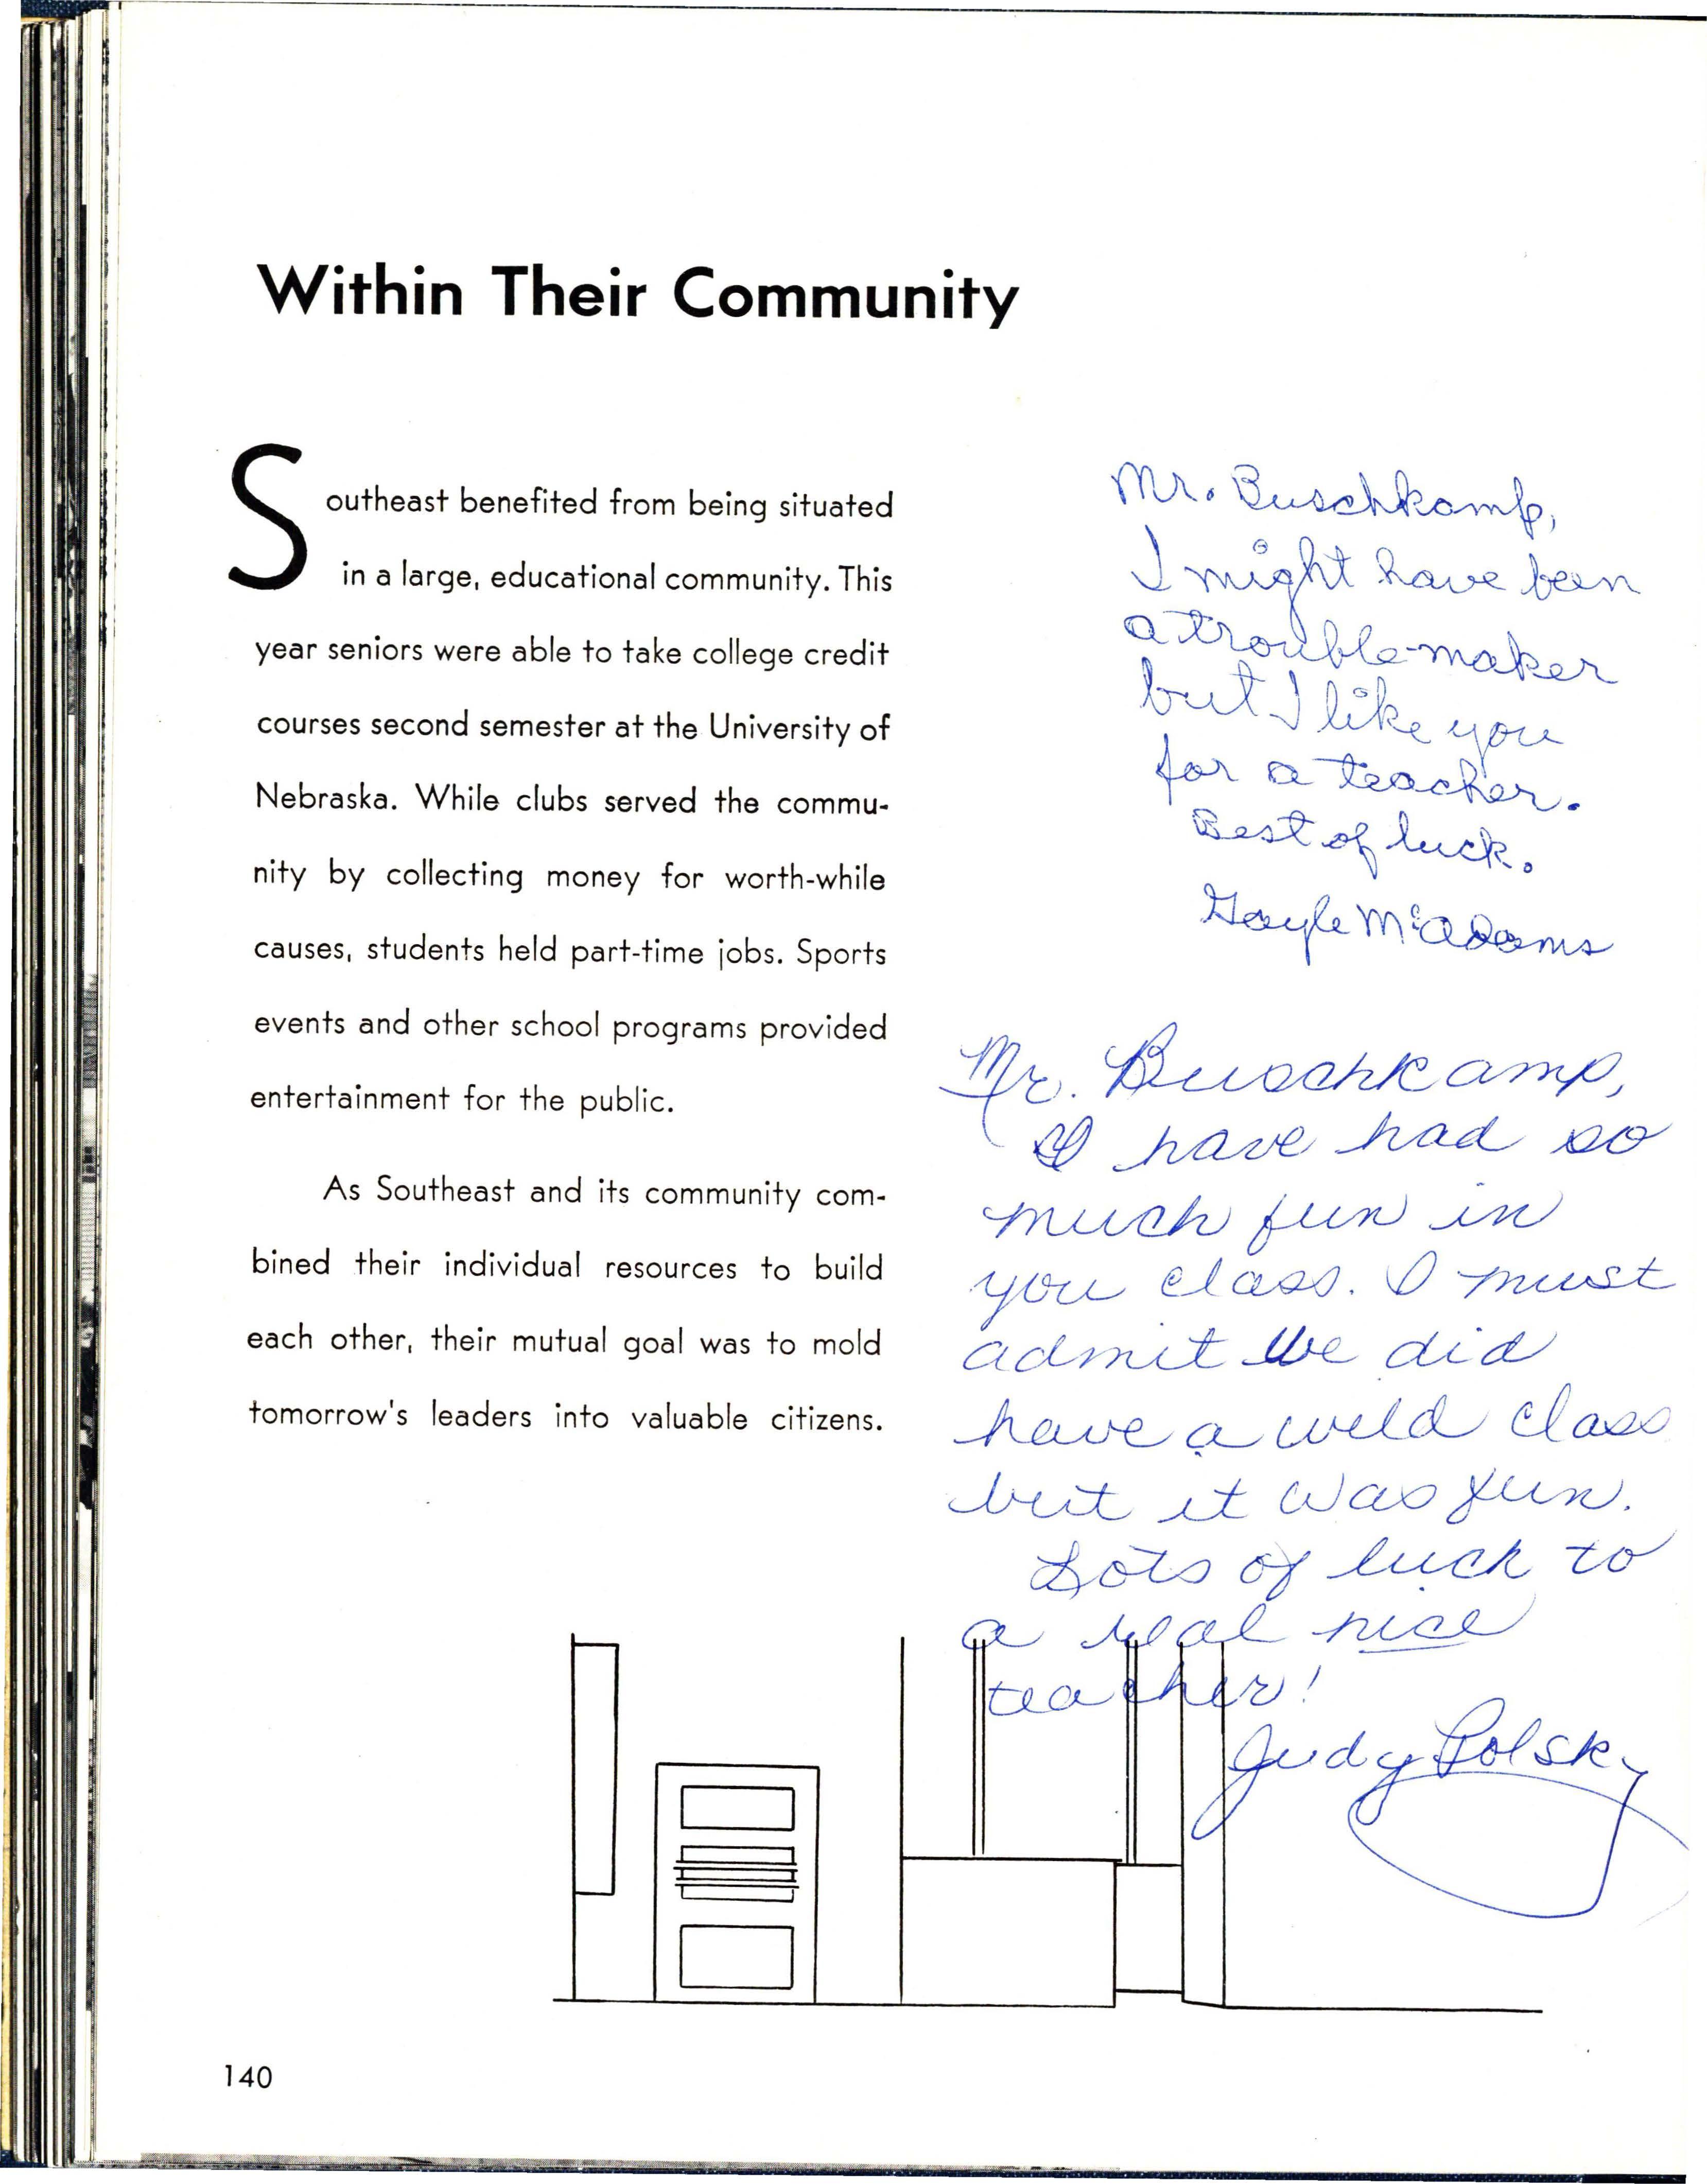 Within Their Community
Southeast benefited from being situated
in a large, educational community. This
year seniors were able to take college credit
courses second semester at the University of
Nebraska. While clubs served the commu-
nity by collecting money for worth-while
causes, students held part-time jobs. Sports
events and other school programs provided
entertainment for the public.
As Southeast and its community com-
bined their individual resources to build
each other, their mutual goal was to mold
tomorrow's leaders into valuable citizens.
Mr. Buschkamp,
I might have been
a trouble-maker
but I like you
for a teacher.
Best of luck.
Gayle McAdams
Mr. Buschkamp,
I have had so
much fun in
you class. I must
admit we did
have a wild class
but it was fun.
Lots of luck to
a real nice
teacher!
Judy Polsky
140